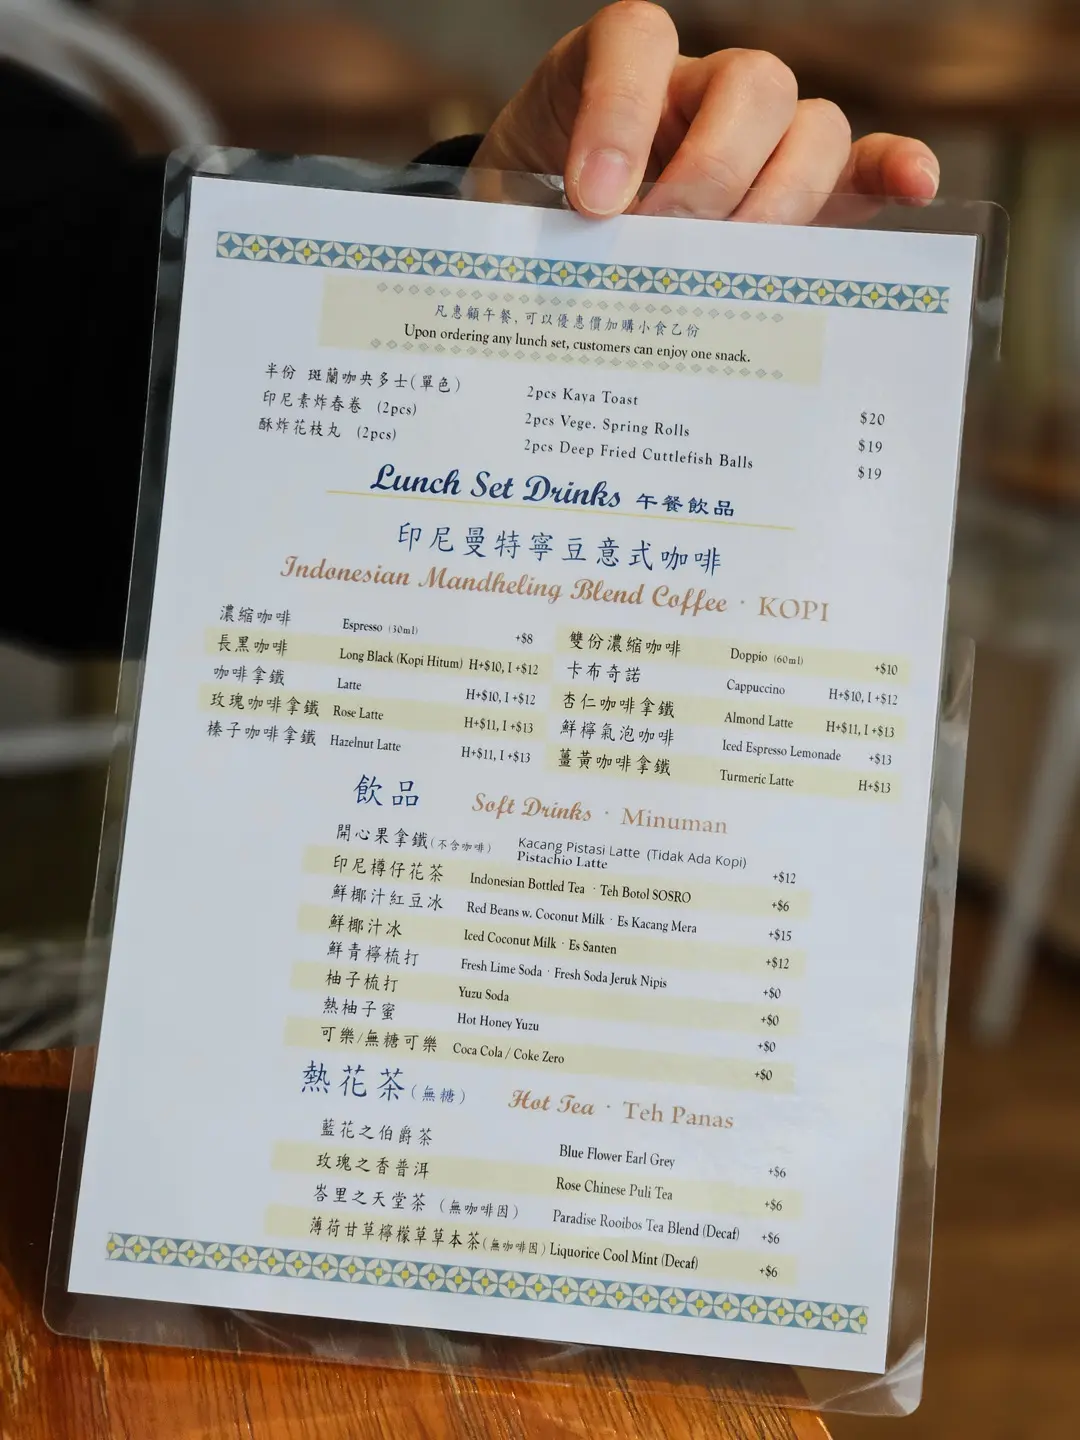 凡惠顧午餐，可以優惠價加購小食乙份
Upon ordering any lunch set, customers can enjoy one snack.
半份 斑蘭咖央多士(單色) 2pcs Kaya Toast $20
印尼素炸春卷 (2pcs) 2pcs Vege. Spring Rolls $19
酥炸花枝丸 (2pcs) 2pcs Deep Fried Cuttlefish Balls $19
Lunch Set Drinks 午餐飲品
印尼曼特寧豆意式咖啡
Indonesian Mandheling Blend Coffee · KOPI
濃縮咖啡 Espresso (30ml) +$8
長黑咖啡 Long Black (Kopi Hitum) H+$10, I +$12
咖啡拿鐵 Latte H+$10, I +$12
玫瑰咖啡拿鐵 Rose Latte H+$11, I +$13
榛子咖啡拿鐵 Hazelnut Latte H+$11, I +$13
雙份濃縮咖啡 Doppio (60ml) +$10
卡布奇諾 Cappuccino H+$10, I +$12
杏仁咖啡拿鐵 Almond Latte H+$11, I +$13
鮮檸氣泡咖啡 Iced Espresso Lemonade +$13
薑黃咖啡拿鐵 Turmeric Latte H+$13
飲品 Soft Drinks · Minuman
開心果拿鐵(不含咖啡) Kacang Pistasi Latte (Tidak Ada Kopi)
Pistachio Latte +$12
印尼樽仔花茶 Indonesian Bottled Tea · Teh Botol SOSRO +$6
鮮椰汁紅豆冰 Red Beans w. Coconut Milk · Es Kacang Mera +$15
鮮椰汁冰 Iced Coconut Milk · Es Santen +$12
鮮青檸梳打 Fresh Lime Soda · Fresh Soda Jeruk Nipis +$0
柚子梳打 Yuzu Soda +$0
熱柚子蜜 Hot Honey Yuzu +$0
可樂/無糖可樂 Coca Cola / Coke Zero +$0
熱花茶(無糖) Hot Tea · Teh Panas
藍花之伯爵茶 Blue Flower Earl Grey +$6
玫瑰之香普洱 Rose Chinese Puli Tea +$6
峇里之天堂茶 (無咖啡因) Paradise Rooibos Tea Blend (Decaf) +$6
薄荷甘草檸檬草草本茶(無咖啡因) Liquorice Cool Mint (Decaf) +$6